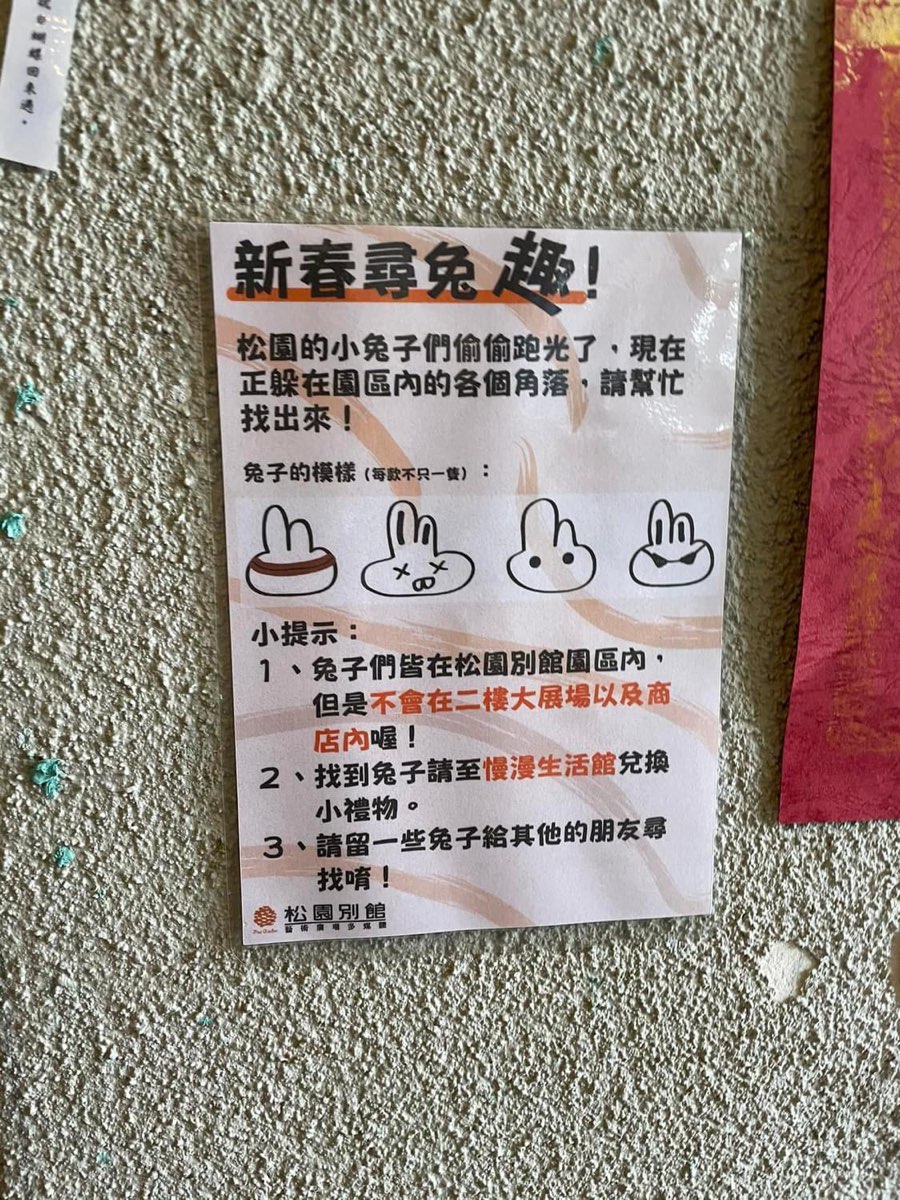 蝴蝶回來過。
新春尋兔趣!
松園的小兔子們偷偷跑光了,現在
正躲在園區內的各個角落,請幫忙
找出來!
兔子的模樣(每款不只一隻):
小提示:
1、兔子們皆在松園別館園區內,
但是不會在二樓大展場以及商
店內喔!
2、找到兔子請至慢漫生活館兌換
小禮物。
3、請留一些兔子給其他的朋友尋
找唷!
松園別館